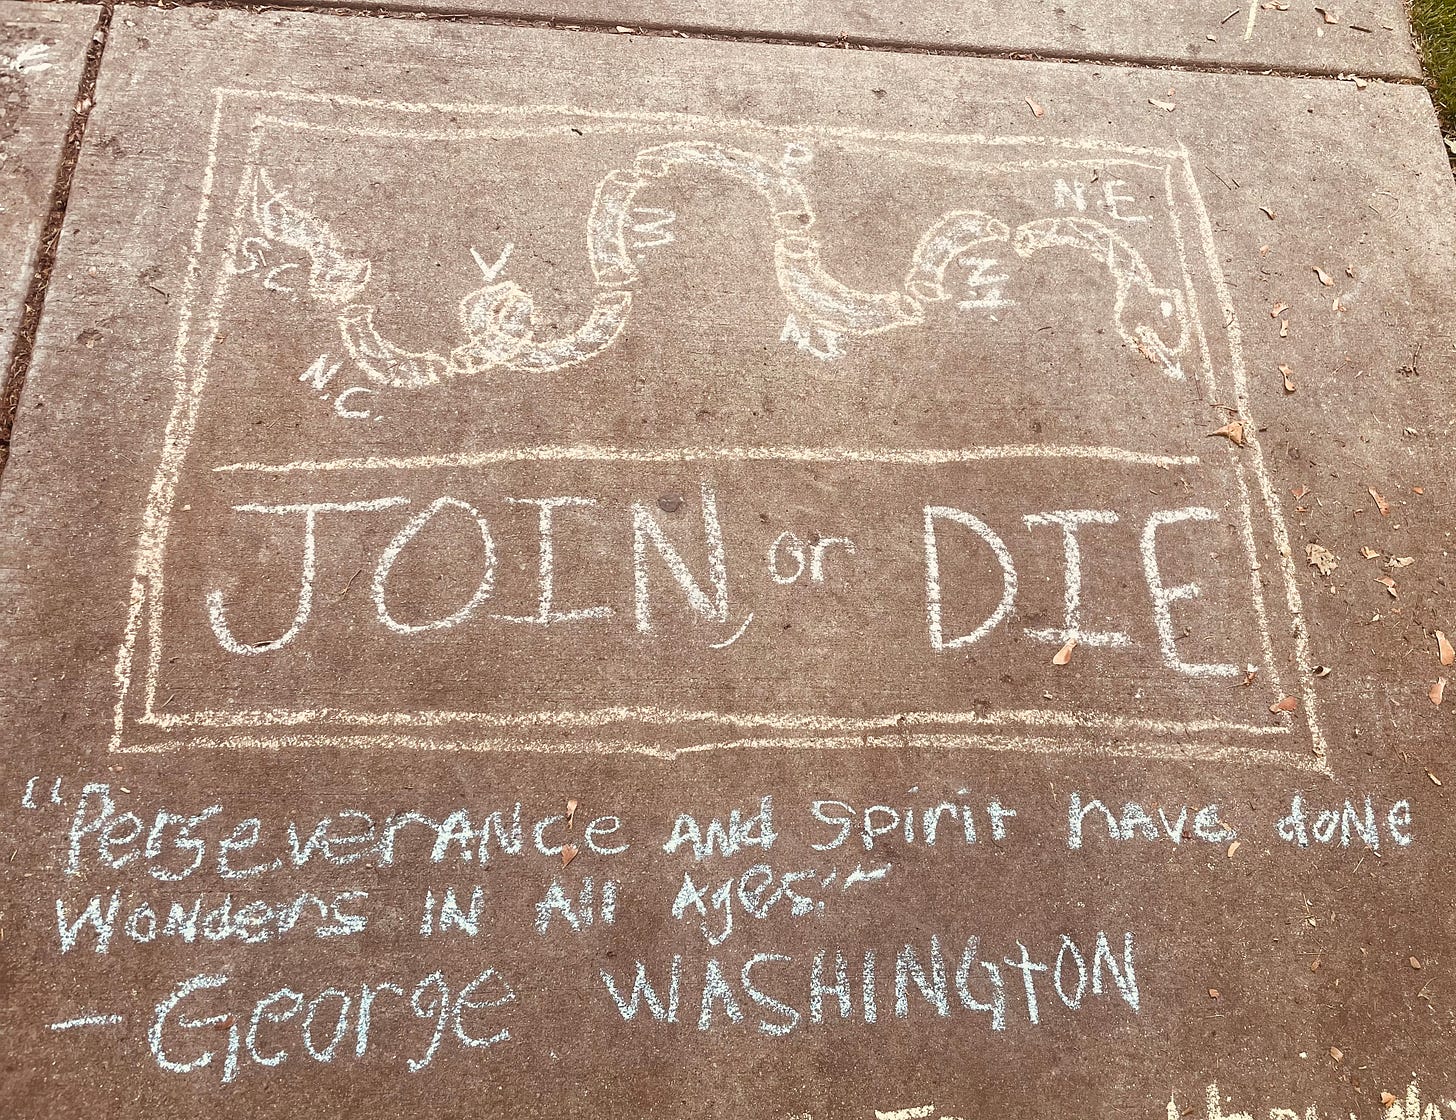 S.C.
N.C.
V
M.
P
N.E
JOIN, or DIE
"Perseverance and Spirit have done
Wonders in All Ages."
- George WASHINGTON